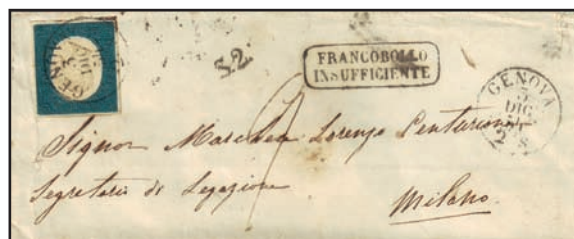 GENOVA
DIC
FRANCOBOLLO
INSUFFICIENTE
GENOVA
3
DIC
Signor Marchese Lorenzo Centurione
Segretario di Legazione
Milano